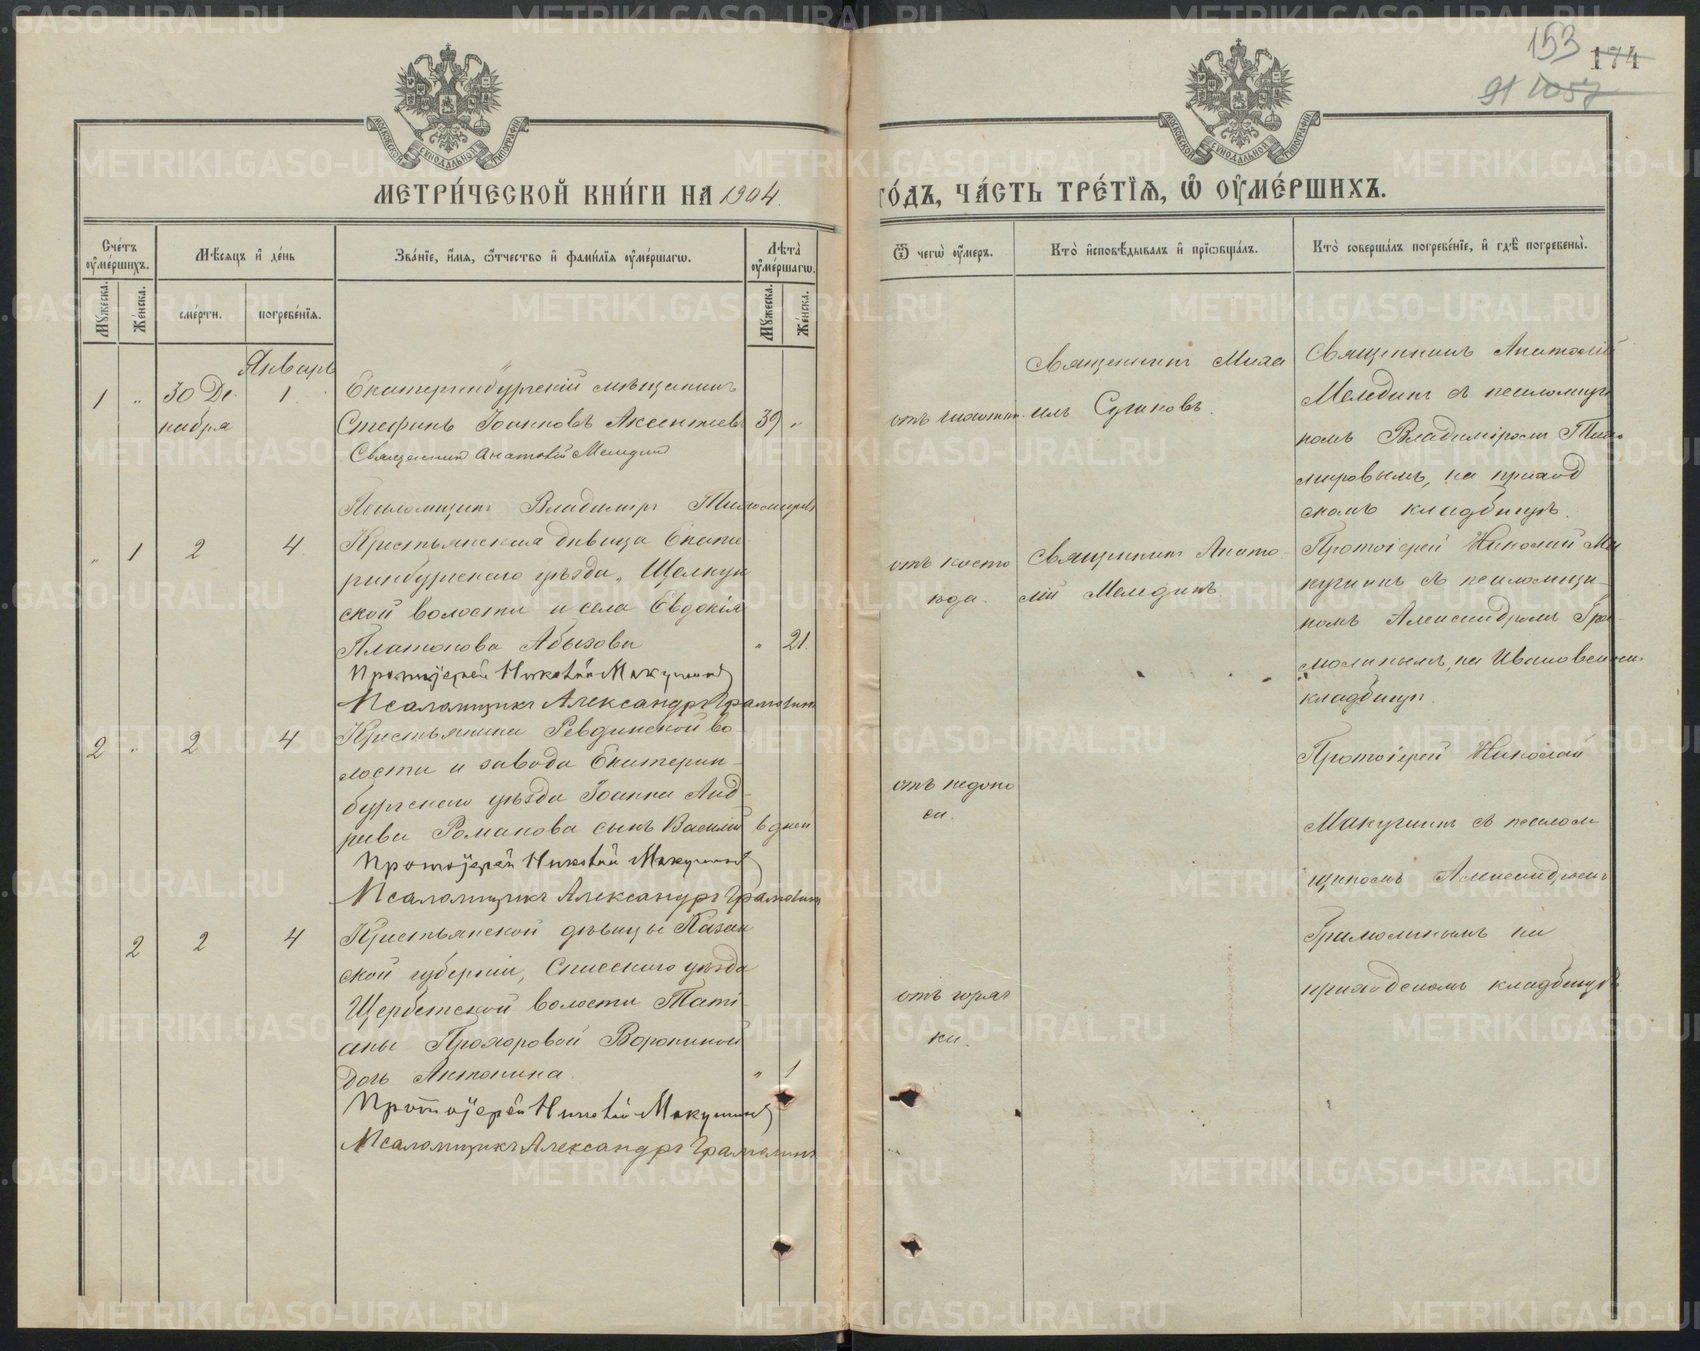 153
174
91 1057
МОСКОВСКОЙ СѴНОДАЛЬНОЙ ТИПОГРАФІИ
МОСКОВСКОЙ СѴНОДАЛЬНОЙ ТИПОГРАФІИ
МЕТРИ́ЧЕСКОЙ КНИ́ГИ НА 1904
ГО́ДЪ, ЧА́СТЬ ТРЕ́ТЇѦ, Ѡ҆ ОУ҆МЕ́РШИХЪ.
Сче́тъ оу҆ме́ршихъ.
Мꙋ́жеска.
Же́нска.
Мѣ́сѧцъ и҆ де́нь
сме́рти.
погребе́нїѧ.
Зва́нїе, и҆́мѧ, ѻ҆́тчество и҆ фами́лїѧ оу҆ме́ршагѡ.
Лѣта̀ оу҆ме́ршагѡ.
Мꙋ́жеска.
Же́нска.
Ѿ чегѡ̀ оу҆́меръ.
Кто̀ и҆сповѣ́дывалъ и҆ прїѡбща́лъ.
Кто̀ соверша́лъ погребе́нїе, и҆ гдѣ̀ погребены̀.
Январь
1 " 30 Де- 1
кабря
Екатеринбургскій мѣщанинъ
Стефанъ Іоанновъ Аксентьевъ 39 "
Священникъ Анатолій Мелединъ
Псаломщикъ Владимиръ Тихомировъ
отъ чахотки.
Священникъ Миха
илъ Сушковъ.
Священникъ Анатолій
Мелединъ съ псаломщи
комъ Владиміромъ Тихо
мировымъ, на приход
скомъ кладбищѣ.
" 1 2 4
Крестьянская дѣвица Екате
ринбургскаго уѣзда, Щелкун
ской волости и села Евдокія
Платонова Абызова " 21.
Протоіерей Николай Макушинъ
Псаломщикъ Александръ Грамолинъ
отъ косто
ѣда.
Священникъ Анато-
лій Мелединъ.
Протоіерей Николай Ма
кушинъ съ псаломщи-
комъ Александромъ Гра-
молинымъ, на Ивановскомъ
кладбищѣ.
2 " 2 4
Крестьянина Ревдинской во-
лости и завода Екатерин-
бургскаго уѣзда Іоанна Анд-
реева Романова сынъ Василій 6 дней
Протоіерей Николай Макушинъ
Псаломщикъ Александръ Грамолинъ
отъ недоно
си.
Протоіерей Николай
Макушинъ съ псалом
щикомъ Александромъ
Грамолинымъ на
приходскомъ кладбищѣ
2 2 4
Крестьянской дѣвицы Казан
ской губерніи, Спасскаго уѣзда
Щербетской волости Таті-
аны Прохоровой Ворониной
дочь Антонина. " 1
Протоіерей Николай Макушинъ
Псаломщикъ Александръ Грамолинъ
отъ горяч
ки.
METRIKI.GASO-URAL.RU